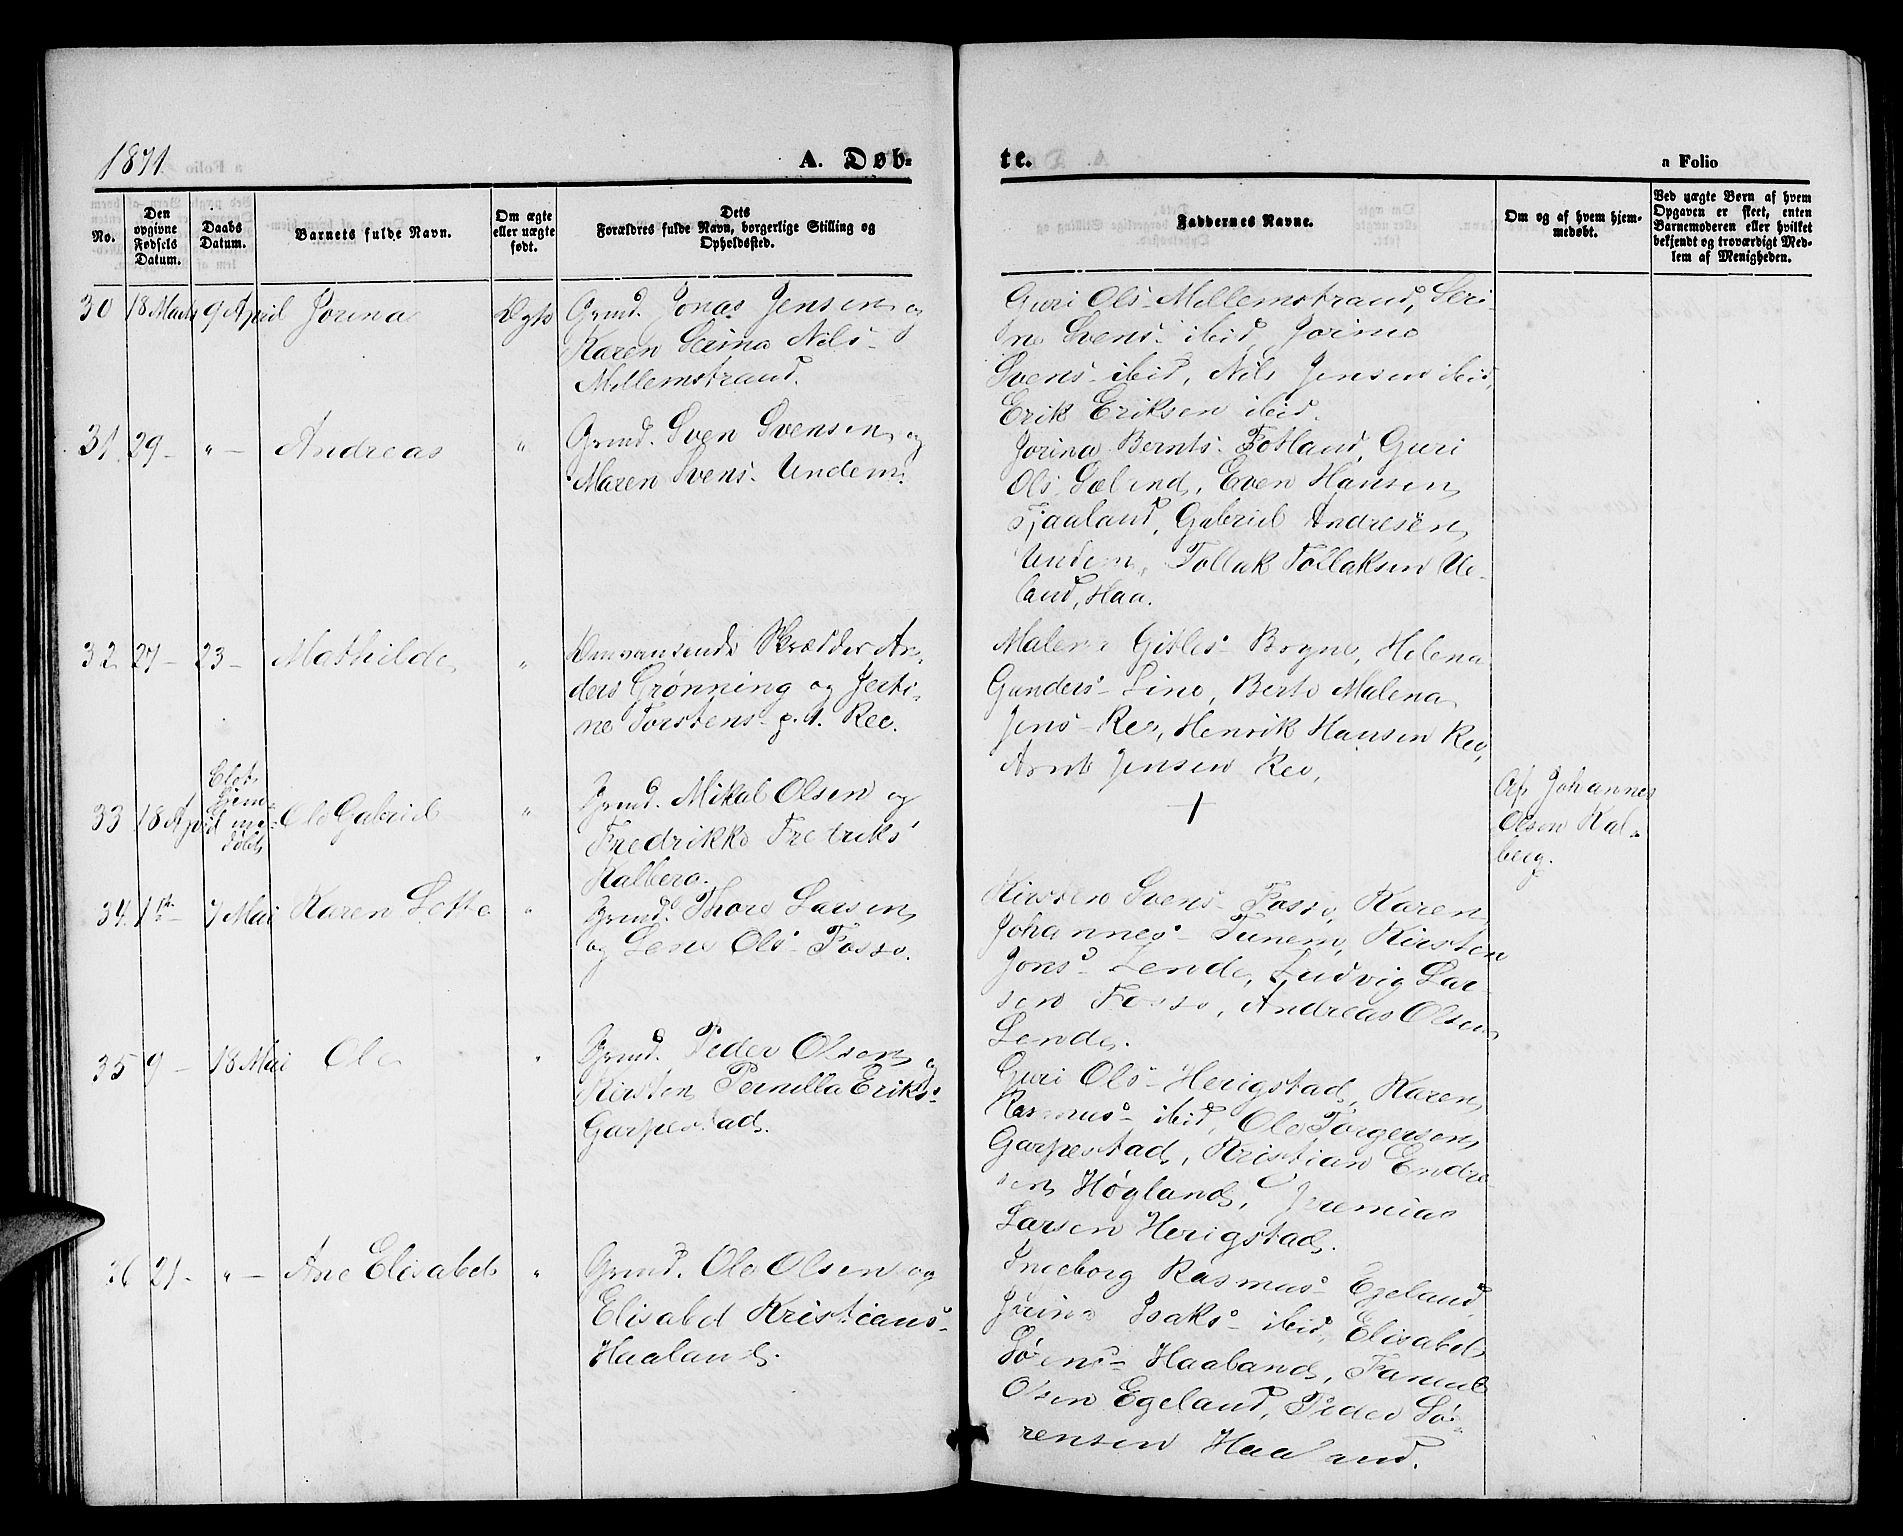 1871.
A. Døb-
te.
a Folio
No.
Den
opgivne
Fødsels
Datum.
Daabs
Datum.
Barnets fulde Navn.
Om ægte
eller uægte
født.
Dets
Forældres fulde Navn, borgerlige Stilling og
Opholdssted.
Faddernes Navne.
Om og af hvem hjem-
medøbt.
Ved uægte Børn af hvem
Opgaven er skeet, enten
Barnemoderen eller hvilket
bekjendt og troværdigt Med-
lem af Menigheden.
30 18 Marts 9 April Jorina Ægte Grmd. Jonas Jensen og
Karen Serina Nils-
Mellemstrand.
Guri Ols- Mellemstrand, Seri-
ne Svens- ibid, Jorine
Svens- ibid, Nils Jensen ibid,
Erik Eriksen ibid.
31. 29 - " - Andreas " Grmd. Sven Svensen og
Maren Svens- Undem.
Jorina Bernts- Fotland, Guri
Ols- Sæland, Even Hansen
Fjaaland, Gabriel Andresen
Undem, Tollak Tollaksen Ue-
land, Haa.
32 27 - 23 - Mathilde " Omvansende Skrædder An-
ders Grønning og Jerti-
ne Torstens- p. t. Ree.
Malena Gitles- Bryne, Helena
Gunders- Line, Berte Malena
Jens- Ree, Henrik Hansen Ree,
Arnt Jensen Ree.
33 18 April Blot
hjem-
me-
døbt Ole Gabriel " Grmd. Mikal Olsen og
Fredrikke Fredriks-
Kalberg.
+
Af Johannes
Olsen Kal-
berg.
34. 1st - 7 Mai Karen Sofie " Grmd. Thore Larsen
og Lene Ols- Fosse.
Kirsten Svens- Fosse, Karen
Johannes- Tunem, Kirsten
Jons- Lende, Ludvig Lar-
sen Fosse, Andreas Olsen
Lende.
35 9 - 18 Mai Ole " Grmd. Peder Olsen og
Kirsten Pernilla Eriks-
Garpestad.
Guri Ols- Herigstad, Karen
Rasmus- ibid, Ole Torgersen
Garpestad, Kristian Endre-
sen Høgland, Jeremias
Larsen Herigstad.
36 21 - " - Ane Elisabet " Grmd. Ole Olsen og
Elisabet Kristians-
Haaland.
Ingeborg Rasmus- Egeland,
Jorine Isaks- ibid, Elisabet
Sørens- Haaland,
Olsen Egeland, Peder Sø-
rensen Haaland.